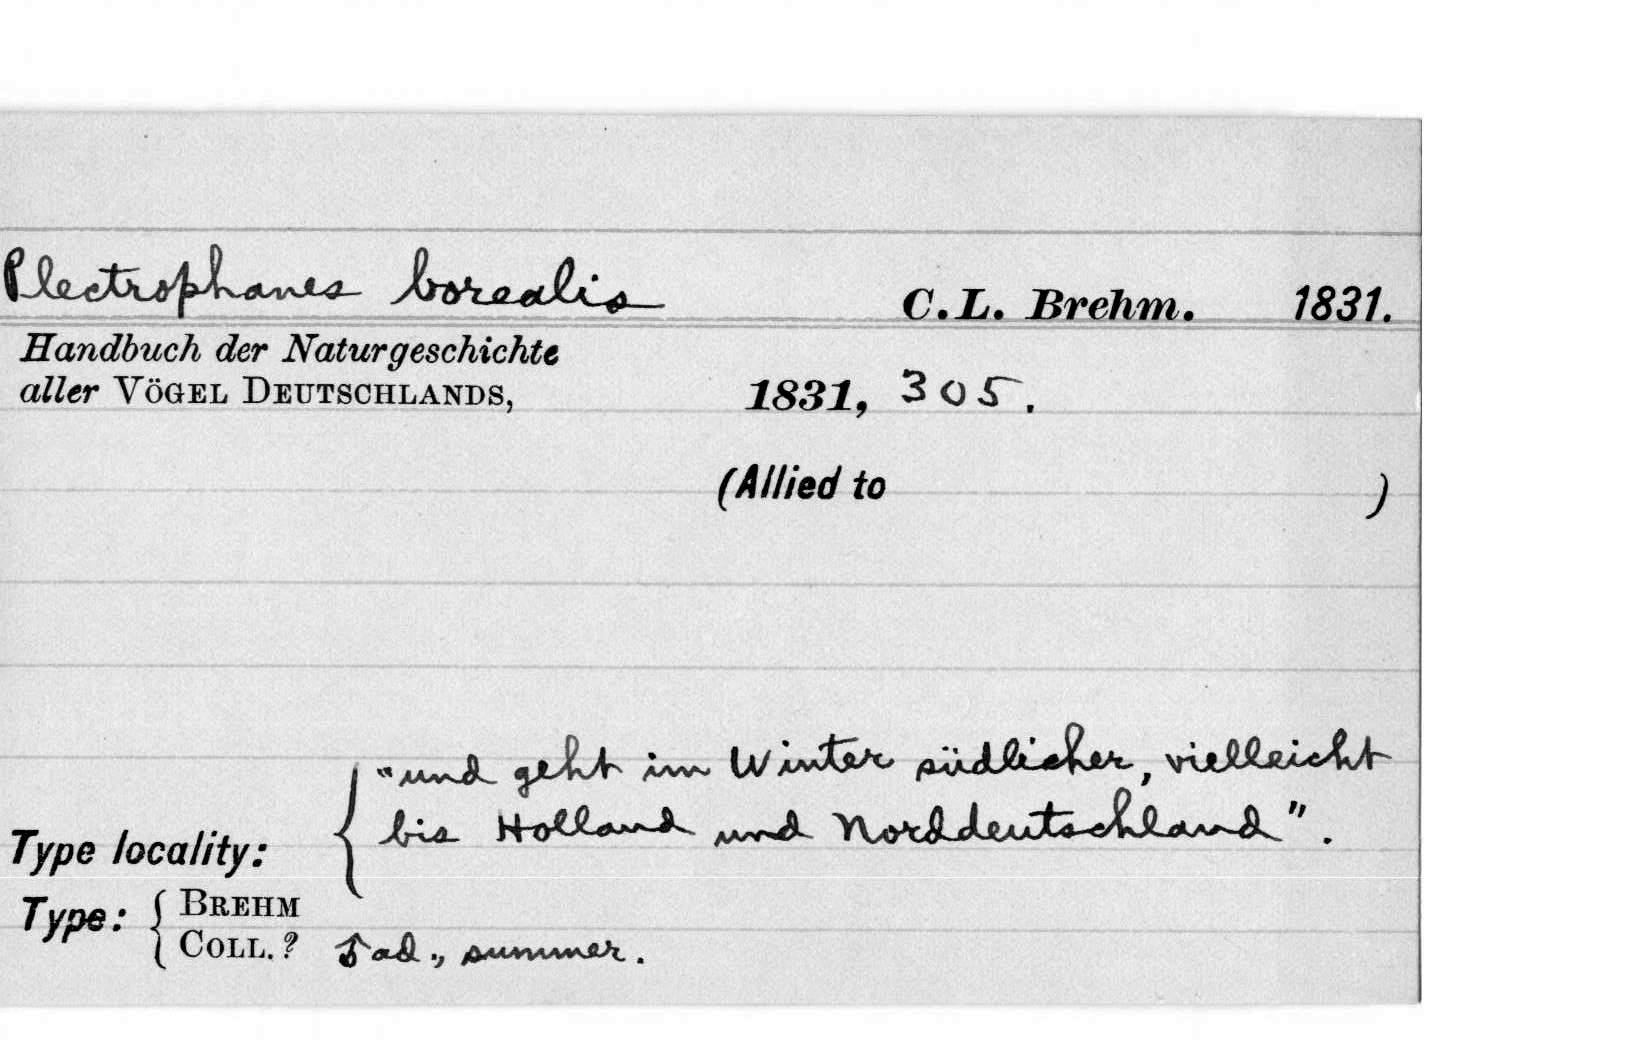 Plectrophanes borealis C.L. Brehm. 1831.
Handbuch der Naturgeschichte
aller VÖGEL DEUTSCHLANDS, 1831, 305.
(Allied to )
"und geht im Winter südlicher, vielleicht
bis Holland und Norddeutschland".
Type locality:
Type: { BREHM
COLL. ? ♂ ad., summer.